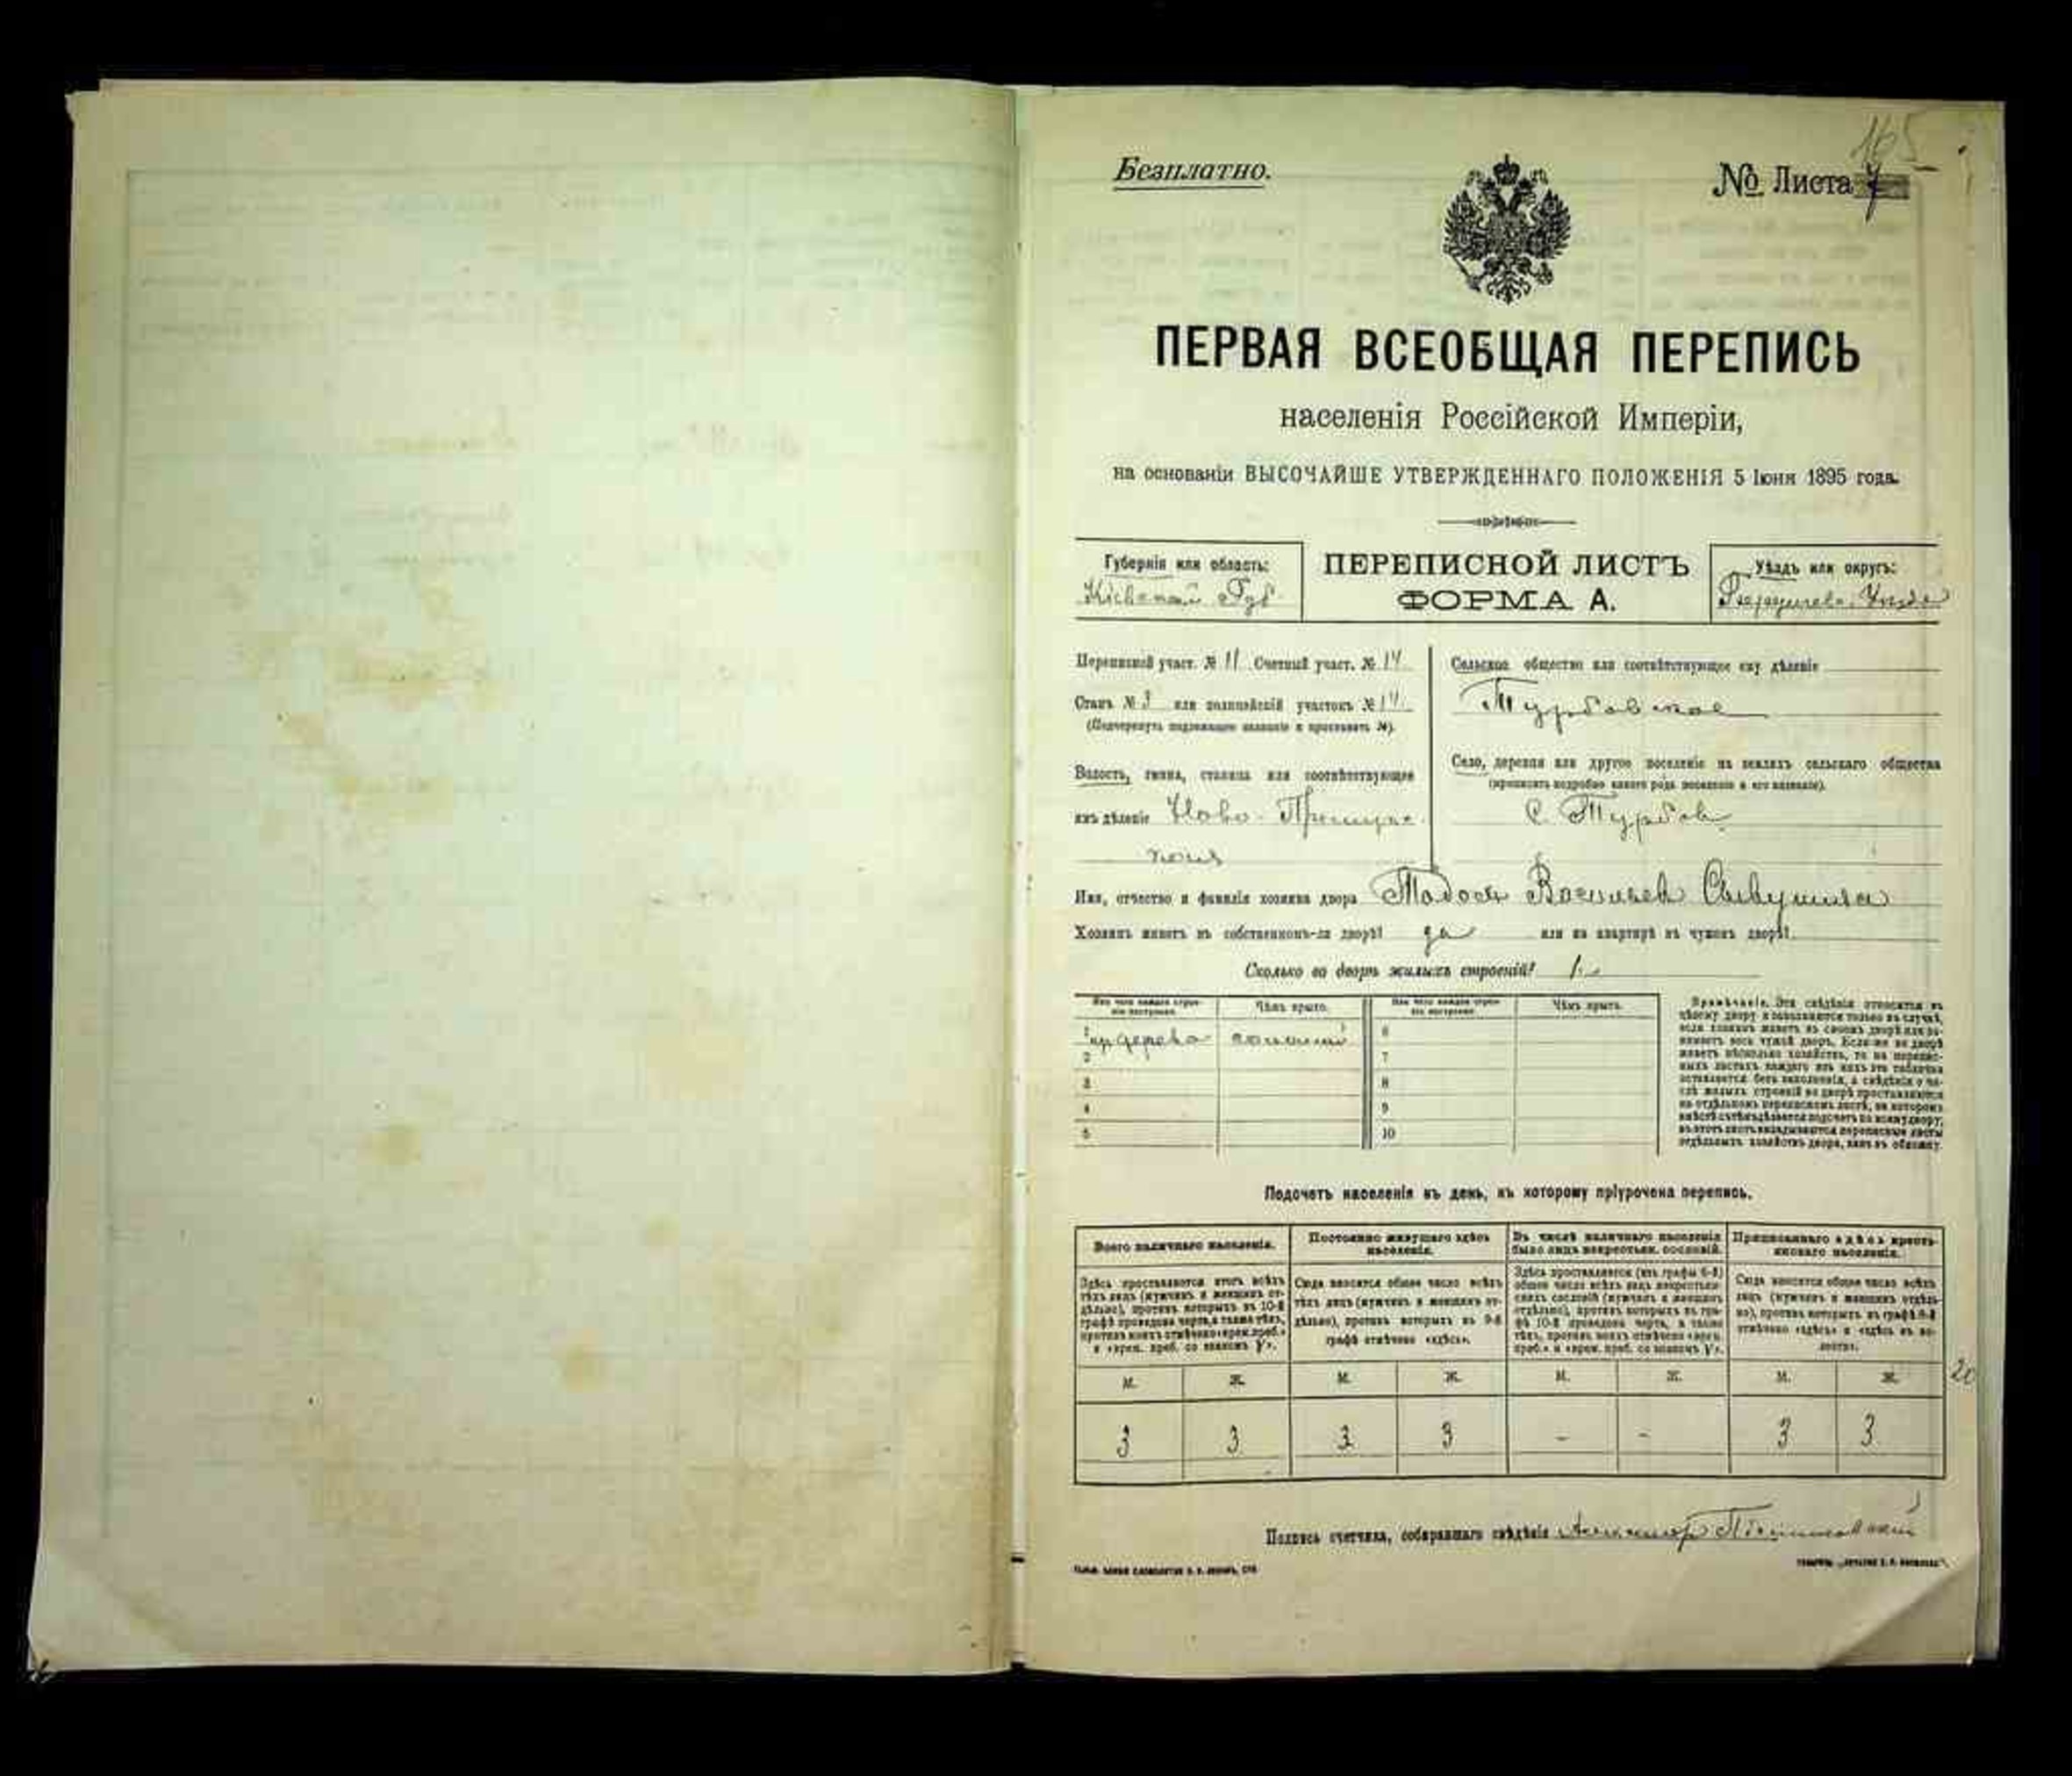 165
Безплатно.
№ Листа 7
ПЕРВАЯ ВСЕОБЩАЯ ПЕРЕПИСЬ
населенія Россійской Имперіи,
на основаніи ВЫСОЧАЙШЕ УТВЕРЖДЕННАГО ПОЛОЖЕНІЯ 5 Іюня 1895 года.
Губернія или область:
Кіевской Губ
ПЕРЕПИСНОЙ ЛИСТЪ
ФОРМА А.
Уѣздъ или округъ:
Переписной участ. № 11 Счетный участ. № 14
Станъ № 3 или полицейскій участокъ № 14
(Подчеркнуть подлежащее названіе и проставить №).
Волость, гмина, станица или соотвѣтствующее
имъ дѣленіе Ново-
Сельское общество или соотвѣтствующее ему дѣленіе
Турбовское
Село, деревня или другое поселеніе на земляхъ сельскаго общества
(прописать подробно какого рода поселеніе и его названіе).
с. Турбов
Имя, отчество и фамилія хозяина двора Тодось Васильев
Хозяинъ живетъ въ собственномъ-ли дворѣ? да или на квартирѣ въ чужомъ дворѣ?
Сколько во дворѣ жилыхъ строеній? 1
Изъ чего каждое строеніе построено. Чѣмъ крыто. Изъ чего каждое строеніе построено. Чѣмъ крыто.
1 дерева соломой 6
2 7
3 8
4 9
5 10
Примѣчаніе. Эти свѣдѣнія относятся къ
цѣлому двору и заполняются только въ случаѣ,
если хозяинъ живетъ въ своемъ дворѣ или за-
нимаетъ весь чужой дворъ. Если же во дворѣ
живетъ нѣсколько хозяйствъ, то на перепис-
ныхъ листахъ каждаго изъ нихъ эта табличка
оставляется безъ заполненія, а свѣдѣнія о чи-
слѣ жилыхъ строеній во дворѣ проставляются
на отдѣльномъ переписномъ листѣ, на которомъ
вмѣстѣ съ тѣмъ дѣлается подсчетъ по всему двору;
въ этотъ листъ вкладываются переписные листы
отдѣльныхъ хозяйствъ двора, какъ въ обложку.
Подсчетъ населенія въ день, къ которому пріурочена перепись.
Всего наличнаго населенія.
Здѣсь проставляется итогъ всѣхъ
тѣхъ лицъ (мужчинъ и женщинъ от-
дѣльно), противъ которыхъ въ 10-й
графѣ проведена черта, а также тѣхъ,
противъ коихъ отмѣчено «врем. преб.»
и «врем. преб. со знакомъ V».
Постоянно живущаго здѣсь
населенія.
Сюда вносится общее число всѣхъ
тѣхъ лицъ (мужчинъ и женщинъ от-
дѣльно), противъ которыхъ въ 9-й
графѣ отмѣчено «здѣсь».
Въ числѣ наличнаго населенія
было лицъ некрестьян. сословій.
Здѣсь проставляется (изъ графы 6-й)
общее число всѣхъ лицъ некрестьян-
скихъ сословій (мужчинъ и женщинъ
отдѣльно), противъ которыхъ въ гра-
фѣ 10-й проведена черта, а также
тѣхъ, противъ коихъ отмѣчено «врем.
преб.» и «врем. преб. со знакомъ V».
Приписаннаго здѣсь кресть-
янскаго населенія.
Сюда вносится общее число всѣхъ
лицъ (мужчинъ и женщинъ отдѣль-
но), противъ которыхъ въ графѣ 8-й
отмѣчено «здѣсь» и «здѣсь въ во-
лости».
М. Ж. М. Ж. М. Ж. М. Ж.
20
3 3 3 3 - - 3 3
Подпись счетчика, собиравшаго свѣдѣнія